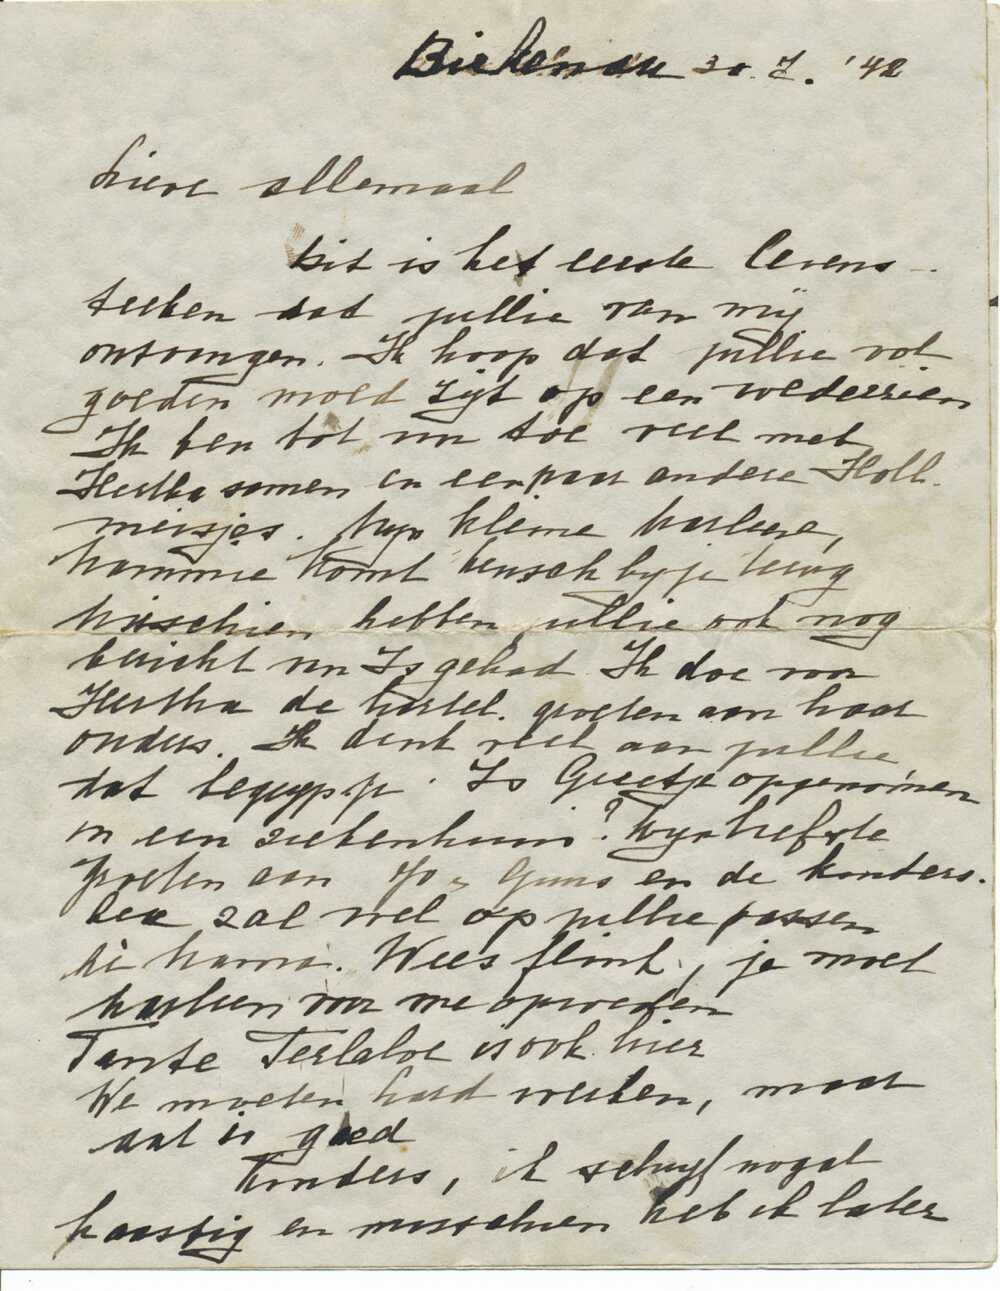 Birkenau 30.7. '42
Lieve allemaal
Dit is het eerste levens-
teeken dat jullie van mij
ontvangen. Ik hoop dat jullie vol
goeden moed zijt op een wederzien
Ik ben tot nu toe veel met
Hertha samen en een paar andere Holl.
meisjes. Mijn kleine
Mammie komt heusch bij je terug
Misschien hebben jullie ook nog
bericht van Is gehad Ik doe van
Hertha de hartel. groeten aan haar
ouders. Ik denk veel aan jullie
dat begrijp je. Is Greetje opgenomen
in een ziekenhuis? Mijn liefste
groeten aan Jo, Guus en de kinders.
zal wel op jullie passen
hè mama. Wees flink, je moet
voor me opvoeden
Tante is ook hier
We moeten hard werken, maar
dat is goed
Kinders, ik schrijf nogal
haastig en misschien heb ik later